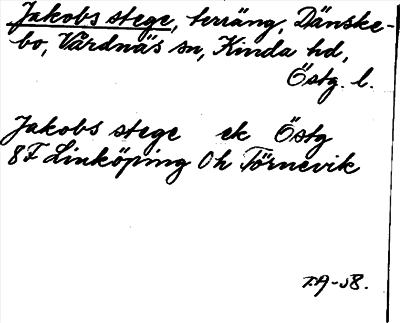 Jakobs stege, terräng, Dänske-
bo, Vårdnäs sn, Kinda hd,
Östg. l.
Jakobs stege ek Östg
8F Linköping Oh Törnevik
T.A-58.